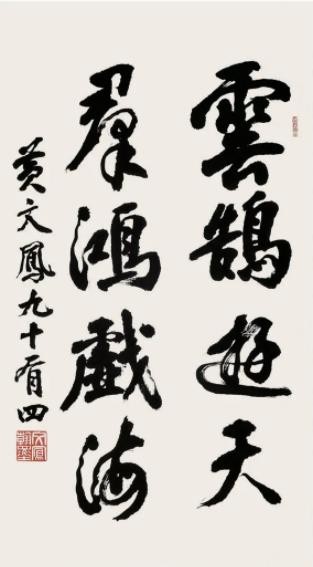 雲鵠遊天
羣鴻戲海
黃文鳳九十有四